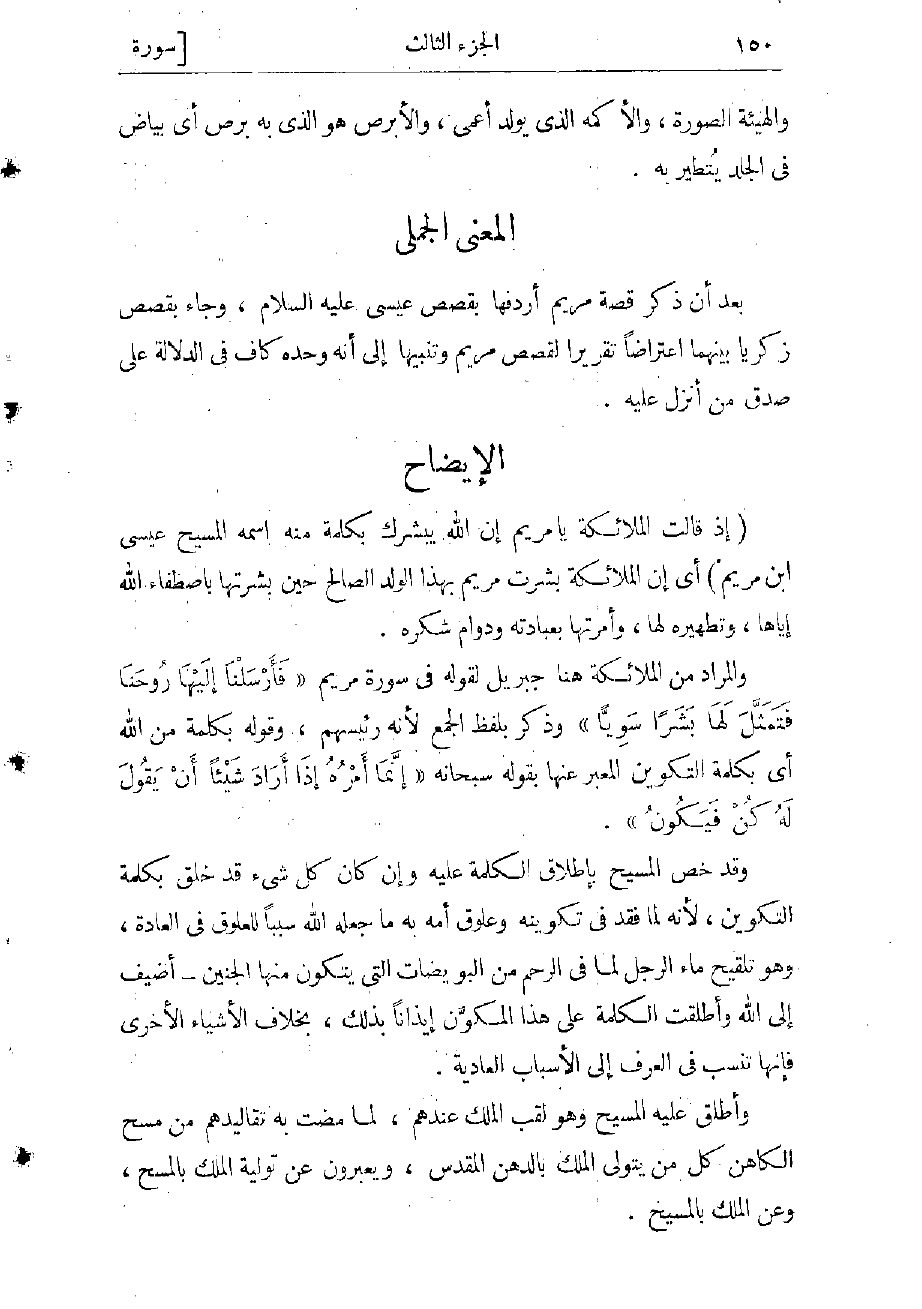 ١٥٠ الجزء الثالث [سورة
والهيئة الصورة ، والأكمه الذى يولد أعمى ، والأبرص هو الذى به برص أى بياض
فى الجلد يُتطير به .
المعنى الجملى
بعد أن ذكر قصة مريم أردفها بقصص عيسى عليه السلام ، وجاء بقصص
زكريا بينهما اعتراضاً تقريرا لقصص مريم وتنبيها إلى أنه وحده كاف فى الدلالة على
صدق من أنزل عليه .
الإيضاح
( إذ قالت الملائكة يا مريم إن الله يبشرك بكلمة منه اسمه المسيح عيسى
ابن مريم ) أى إن الملائكة بشرت مريم بهذا الولد الصالح حين بشرتها باصطفاء الله
إياها ، وتطهيره لها ، وأمرتها بعبادته ودوام شكره .
والمراد من الملائكة هنا جبريل لقوله فى سورة مريم « فَأَرْسَلْنَا إِلَيْهَا رُوحَنَا
فَتَمَثَّلَ لَهَا بَشَرًا سَوِيًّا » وذكر بلفظ الجمع لأنه رئيسهم ، وقوله بكلمة من الله
أى بكلمة التكوين المعبر عنها بقوله سبحانه « إِنَّمَا أَمْرُهُ إِذَا أَرَادَ شَيْئًا أَنْ يَقُولَ
لَهُ كُنْ فَيَكُونُ » .
وقد خص المسيح بإطلاق الكلمة عليه وإن كان كل شىء قد خلق بكلمة
التكوين ، لأنه لما فقد فى تكوينه وعلوق أمه به ما جعله الله سبباً للعلوق فى العادة ،
وهو تلقيح ماء الرجل لما فى الرحم من البويضات التى يتكون منها الجنين – أضيف
إلى الله وأطلقت الكلمة على هذا المكوَّن إيذاناً بذلك ، بخلاف الأشياء الأخرى
فإنها تنسب فى العرف إلى الأسباب العادية .
وأطلق عليه المسيح وهو لقب الملك عندهم ، لما مضت به تقاليدهم من مسح
الكاهن كل من يتولى الملك بالدهن المقدس ، ويعبرون عن تولية الملك بالمسح ،
وعن الملك بالمسيح .